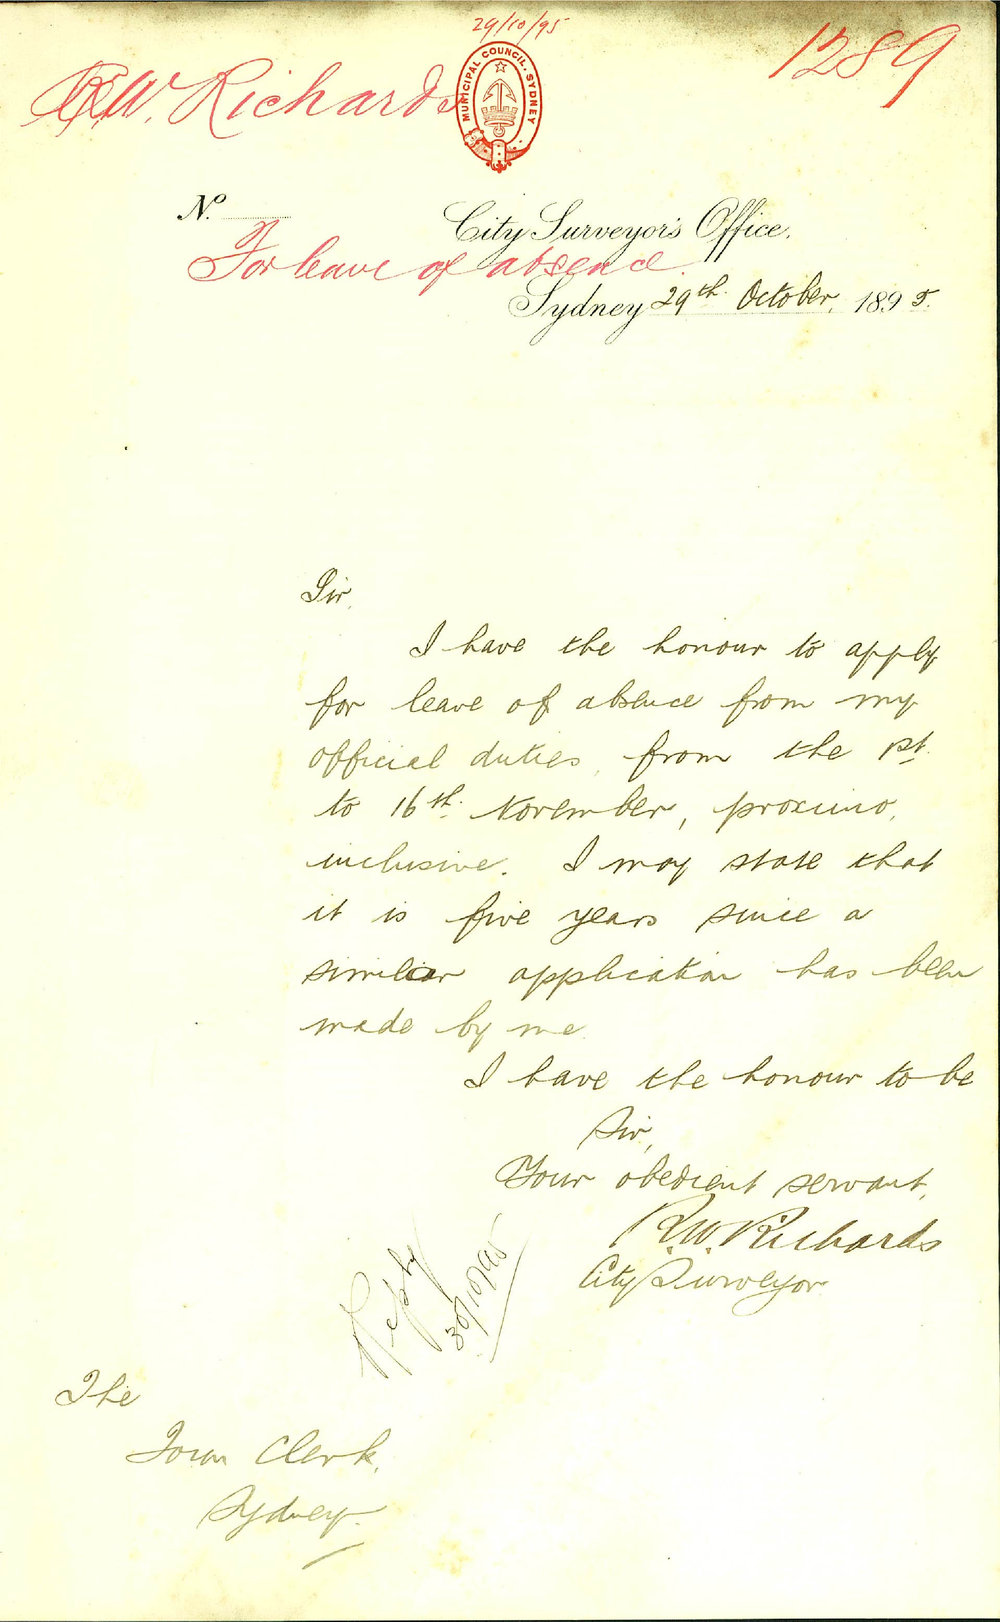 29/10/95
1289
R.W. Richards
MUNICIPAL COUNCIL. SYDNEY
No.
City Surveyor's Office.
For leave of absence.
Sydney 29th October, 1895.
Sir,
I have the honour to apply
for leave of absence from my
official duties, from the 1st.
to 16th. November, proximo,
inclusive. I may state that
it is five years since a
similar application has been
made by me.
I have the honour to be
Sir,
Your obedient servant,
R.W. Richards
City Surveyor
Reply
30/10/95
The
Town Clerk,
Sydney.